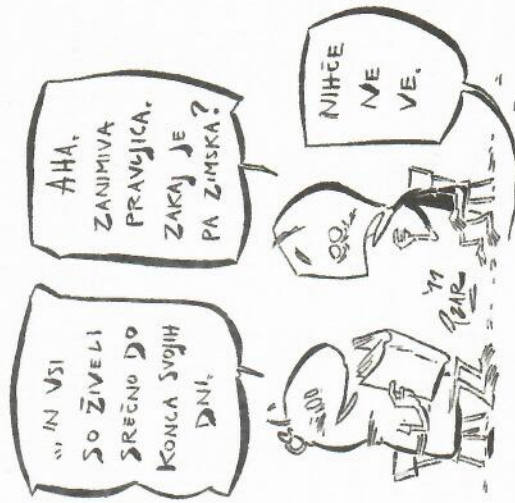 ... IN VSI
SO ŽIVELI
SREČNO DO
KONCA SVOJIH
DNI.
AHA.
ZANIMIVA
PRAVLJICA.
ZAKAJ JE
PA ZIMSKA?
NIHČE
NE
VE.
'11